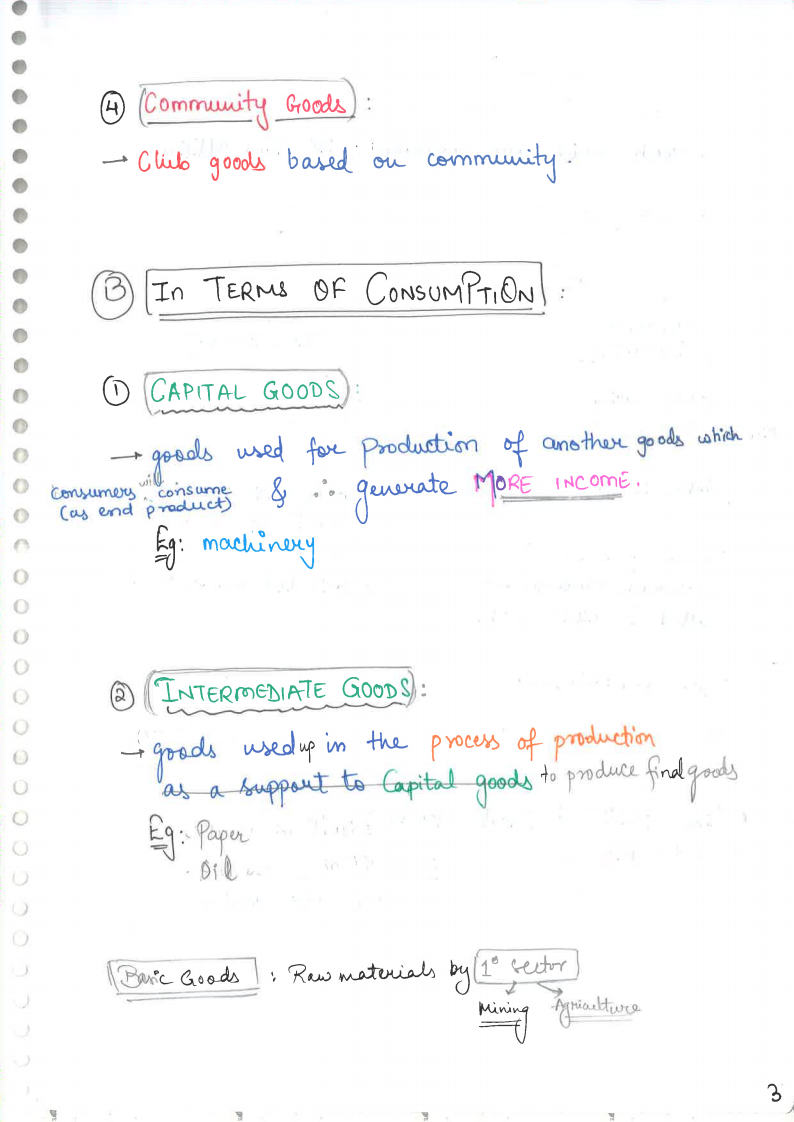 ④ Community Goods :
→ Club goods based on community.
Ⓑ In TERMS OF CONSUMPTION :
① CAPITAL GOODS :
→ goods used for Production of another goods which
consumers will consume & ∴ generate MORE INCOME.
(as end product)
Eg: machinery
② INTERMEDIATE GOODS :
→ goods used up in the process of production
as a support to Capital goods to produce final goods
Eg: Paper
Oil
Basic Goods : Raw materials by 1° sector
Mining Agriculture
3